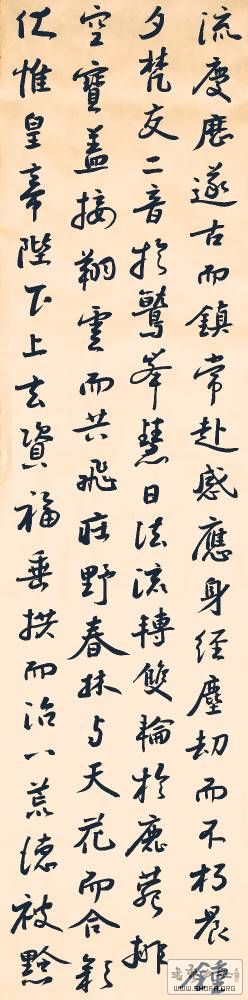 流慶歷遂古而鎮常赴感應身經塵劫而不朽晨鍾
夕梵交二音於鷲峯慧日法流轉雙輪於鹿菀排
空寶蓋接翔雲而共飛莊野春林与天花而合彩
伏惟皇帝陛下上玄資福垂拱而治八荒德被黔
WWW.SHUFA.ORG